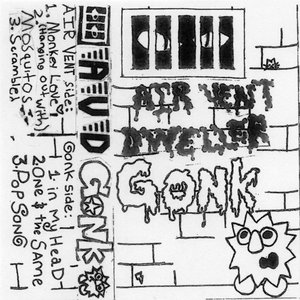 AIR VENT side:
1. Monkey Love
2. (Hanging out with)
Mosquitos
3. Scrambled
Gonk side:
1 in My HEAD
2 One & the SAME
3. POP SONG
AVD GONK
AIR VENT
GONK